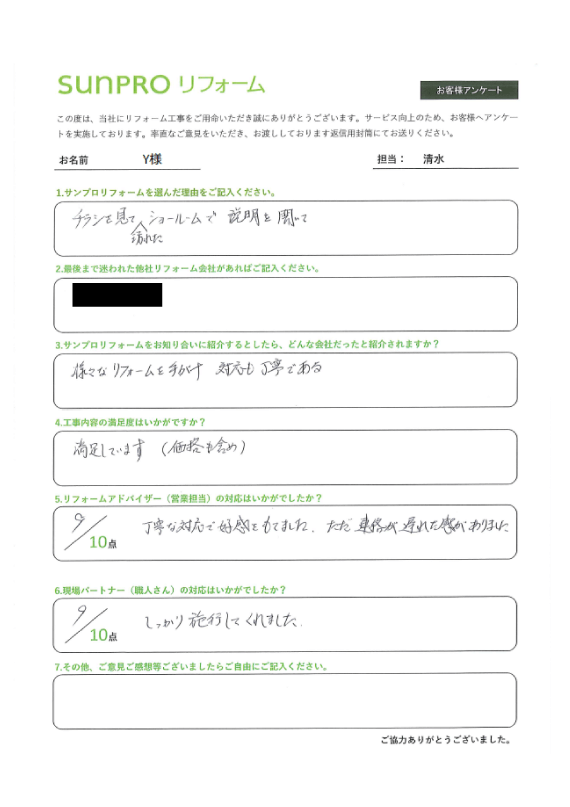 SUNPRO リフォーム
お客様アンケート
この度は、当社にリフォーム工事をご用命いただき誠にありがとうございます。サービス向上のため、お客様へアンケー
トを実施しております。率直なご意見をいただき、お渡ししております返信用封筒にてお送りください。
お名前 Y様 担当： 清水
1.サンプロリフォームを選んだ理由をご記入ください。
チラシを見て ショールームで 説明を聞いて
訪れた
2.最後まで迷われた他社リフォーム会社があればご記入ください。
3.サンプロリフォームをお知り合いに紹介するとしたら、どんな会社だったと紹介されますか？
様々なリフォームを手がけ 対応も丁寧である
4.工事内容の満足度はいかがですか？
満足しています （価格も含め）
5.リフォームアドバイザー（営業担当）の対応はいかがでしたか？
9/10点 丁寧な対応で好感をもてました．ただ 連絡が遅れた感がありました
6.現場パートナー（職人さん）の対応はいかがでしたか？
9/10点 しっかり施行してくれました．
7.その他、ご意見ご感想等ございましたらご自由にご記入ください。
ご協力ありがとうございました。